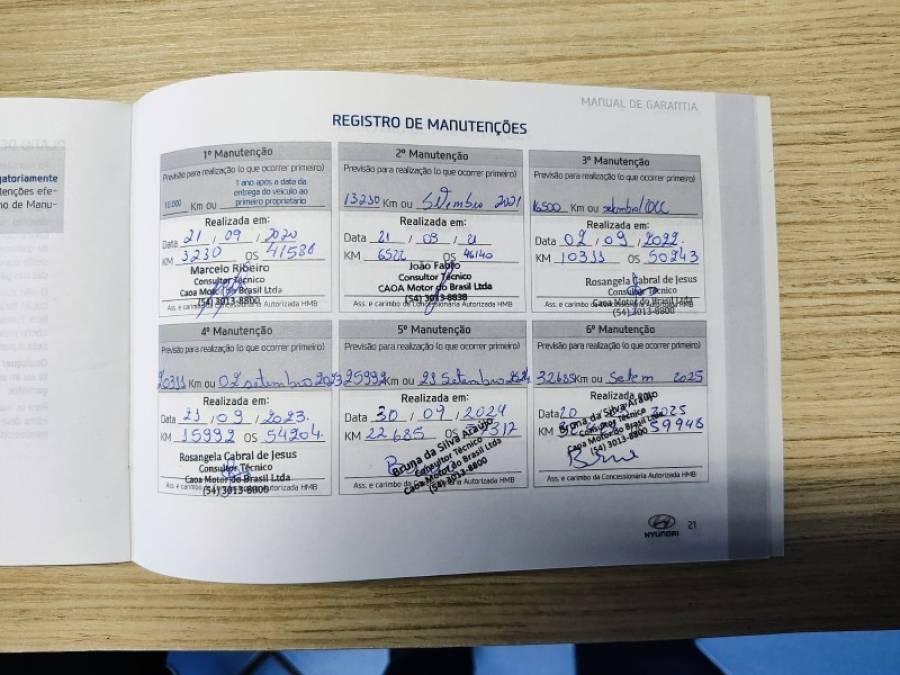 MANUAL DE GARANTIA
REGISTRO DE MANUTENÇÕES
gatoriamente
tenções efe-
no de Manu-
1º Manutenção
Previsão para realização (o que ocorrer primeiro)
10.000 Km ou 1 ano após a data da entrega do veículo ao primeiro proprietário
Realizada em:
Data 21 / 09 / 2020
KM 3230 OS 41586
Marcelo Ribeiro
Consultor Técnico
Caoa Motor do Brasil Ltda
(54) 3013-8800
Ass. e carimbo da Concessionária Autorizada HMB
2º Manutenção
Previsão para realização (o que ocorrer primeiro)
13230 Km ou Setembro 2021
Realizada em:
Data 21 / 09 / 21
KM 6522 OS 46140
João Fabio
Consultor Técnico
CAOA Motor do Brasil Ltda
(54) 3013-8838
Ass. e carimbo da Concessionária Autorizada HMB
3º Manutenção
Previsão para realização (o que ocorrer primeiro)
16500 Km ou setembro
Realizada em:
Data 02 / 09 / 2022.
KM 10311 OS 50243
Rosangela Cabral de Jesus
Consultor Técnico
Caoa Motor do Brasil Ltda
(54) 3013-8800
Ass. e carimbo da Concessionária Autorizada HMB
4º Manutenção
Previsão para realização (o que ocorrer primeiro)
20311 Km ou 02 setembro 2023
Realizada em:
Data 21 / 09 / 2023.
KM 15992 OS 54204
Rosangela Cabral de Jesus
Consultor Técnico
Caoa Motor do Brasil Ltda
(54) 3013-8800
Ass. e carimbo da Concessionária Autorizada HMB
5º Manutenção
Previsão para realização (o que ocorrer primeiro)
25992 Km ou 21 Setembro 2024
Realizada em:
Data 30 / 09 / 2024
KM 22685 OS
Bruna da Silva Araújo
Consultor Técnico
Caoa Motor do Brasil Ltda
(54) 3013-8800
Ass. e carimbo da Concessionária Autorizada HMB
6º Manutenção
Previsão para realização (o que ocorrer primeiro)
32685 Km ou Setem 2025
Realizada em:
Data 20 2025
KM 59948
Bruna da Silva Araujo
Consultor Técnico
Caoa Motor do Brasil Ltda
(54) 3013-8800
Ass. e carimbo da Concessionária Autorizada HMB
HYUNDAI 21